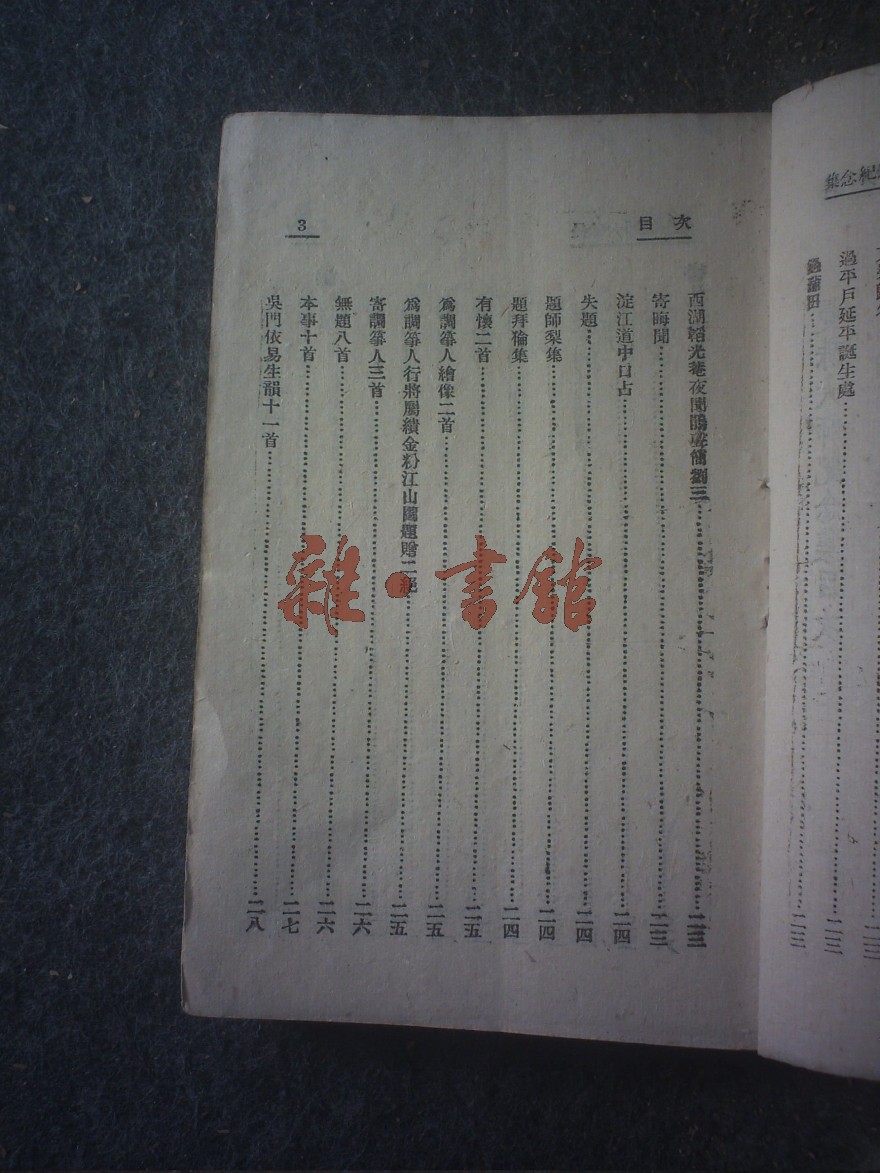 紀念集
過平戶延平誕生處……二三
目次
3
西湖韜光菴夜聞鵑聲簡劉三……二三
寄晦聞……二三
淀江道中口占……二四
失題……二四
題師梨集……二四
題拜倫集……二四
有懷二首……二五
爲調箏人繪像二首……二五
爲調箏人行將屬續金粉江山圖題贈二絕……二五
寄調箏人三首……二六
無題八首……二六
本事十首……二七
吳門依易生韻十一首……二八
雜·書館